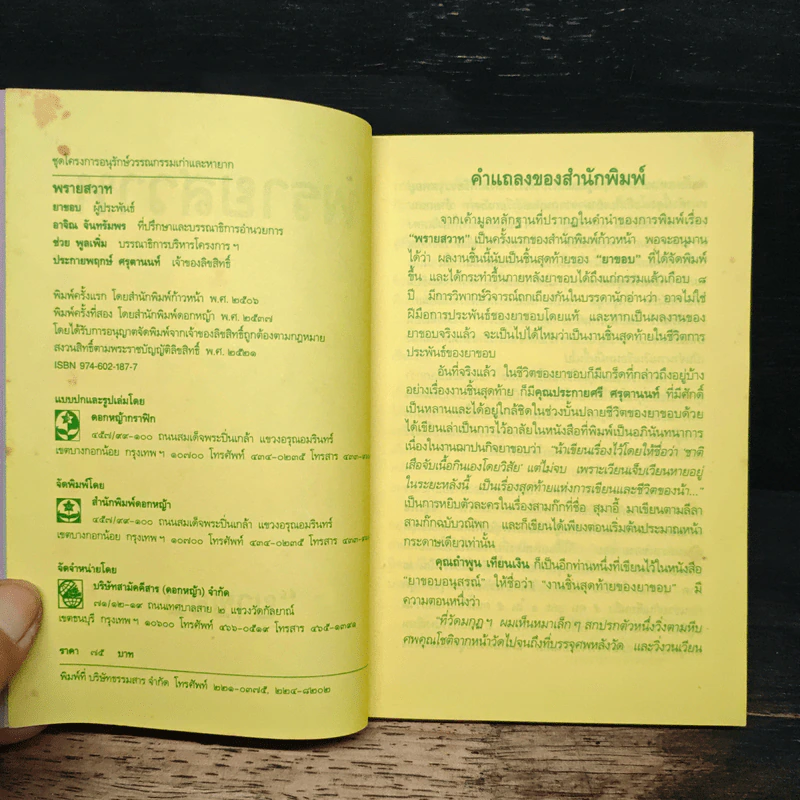 ชุดโครงการอนุรักษ์วรรณกรรมเก่าและหายาก
พรายสวาท
ยาขอบ ผู้ประพันธ์
อาจิณ จันทรัมพร ที่ปรึกษาและบรรณาธิการอำนวยการ
ช่วย พูลเพิ่ม บรรณาธิการบริหารโครงการ ฯ
ประกายพฤกษ์ ศรุตานนท์ เจ้าของลิขสิทธิ์
พิมพ์ครั้งแรก โดยสำนักพิมพ์ก้าวหน้า พ.ศ. ๒๕๐๖
พิมพ์ครั้งที่สอง โดยสำนักพิมพ์ดอกหญ้า พ.ศ. ๒๕๓๗
โดยได้รับการอนุญาตจัดพิมพ์จากเจ้าของลิขสิทธิ์ถูกต้องตามกฎหมาย
สงวนสิทธิ์ตามพระราชบัญญัติลิขสิทธิ์ พ.ศ. ๒๕๒๑
ISBN 974-602-187-7
แบบปกและรูปเล่มโดย
ดอกหญ้ากราฟิก
๔๕๗/๙๙-๑๐๐ ถนนสมเด็จพระปิ่นเกล้า แขวงอรุณอมรินทร์
เขตบางกอกน้อย กรุงเทพ ฯ ๑๐๗๐๐ โทรศัพท์ ๔๓๔-๐๒๓๕ โทรสาร
จัดพิมพ์โดย
สำนักพิมพ์ดอกหญ้า
๔๕๗/๙๙-๑๐๐ ถนนสมเด็จพระปิ่นเกล้า แขวงอรุณอมรินทร์
เขตบางกอกน้อย กรุงเทพ ฯ ๑๐๗๐๐ โทรศัพท์ ๔๓๔-๐๒๓๕ โทรสาร
จัดจำหน่ายโดย
บริษัทสามัคคีสาร (ดอกหญ้า) จำกัด
๗๑/๑๒-๑๙ ถนนเทศบาลสาย ๒ แขวงวัดกัลยาณ์
เขตธนบุรี กรุงเทพ ฯ ๑๐๖๐๐ โทรศัพท์ ๔๖๖-๐๕๑๙ โทรสาร ๔๖๕-๑๓๙๑
ราคา ๗๕ บาท
พิมพ์ที่ บริษัทธรรมสาร จำกัด โทรศัพท์ ๒๒๑-๐๓๗๕, ๒๒๔-๘๒๐๒
คำแถลงของสำนักพิมพ์
จากเค้ามูลหลักฐานที่ปรากฏในคำนำของการพิมพ์เรื่อง
“พรายสวาท” เป็นครั้งแรกของสำนักพิมพ์ก้าวหน้า พอจะอนุมาน
ได้ว่า ผลงานชิ้นนี้นับเป็นชิ้นสุดท้ายของ “ยาขอบ” ที่ได้จัดพิมพ์
ขึ้น และได้กระทำขึ้นภายหลังยาขอบได้ถึงแก่กรรมแล้วเกือบ ๘
ปี มีการวิพากษ์วิจารณ์ถกเถียงกันในบรรดานักอ่านว่า อาจไม่ใช่
ฝีมือการประพันธ์ของยาขอบโดยแท้ และหากเป็นผลงานของ
ยาขอบจริงแล้ว จะเป็นไปได้ไหมว่าเป็นงานชิ้นสุดท้ายในชีวิตการ
ประพันธ์ของยาขอบ
อันที่จริงแล้ว ในชีวิตของยาขอบก็มีเกร็ดที่กล่าวถึงอยู่บ้าง
อย่างเรื่องงานชิ้นสุดท้าย ก็มีคุณประกายศรี ศรุตานนท์ ที่มีศักดิ์
เป็นหลานและได้อยู่ใกล้ชิดในช่วงบั้นปลายชีวิตของยาขอบด้วย
ได้เขียนเล่าเป็นการไว้อาลัยในหนังสือที่พิมพ์เป็นอภินันทนาการ
เนื่องในงานฌาปนกิจยาขอบว่า “น้าเขียนเรื่องไว้โดยให้ชื่อว่า ‘ชาติ
เสือจับเนื้อกินเองโดยวิสัย’ แต่ไม่จบ เพราะเวียนเจ็บเวียนหายอยู่
ในระยะหลังนี้ เป็นเรื่องสุดท้ายแห่งการเขียนและชีวิตของน้า...”
เป็นการหยิบตัวละครในเรื่องสามก๊กที่ชื่อ สุมาอี้ มาเขียนตามลีลา
สามก๊กฉบับวณิพก และก็เขียนได้เพียงตอนเริ่มต้นประมาณหน้า
กระดาษเดียวเท่านั้น
คุณถ้ำพูน เทียนเงิน ก็เป็นอีกท่านหนึ่งที่เขียนไว้ในหนังสือ
“ยาขอบอนุสรณ์” ให้ชื่อว่า “งานชิ้นสุดท้ายของยาขอบ” มี
ความตอนหนึ่งว่า
“ที่วัดมกุฏ ฯ ผมเห็นหมาเล็ก ๆ สกปรกตัวหนึ่งวิ่งตามหีบ
ศพคุณโชติจากหน้าวัดไปจนถึงที่บรรจุศพหลังวัด และวิ่งวนเวียน